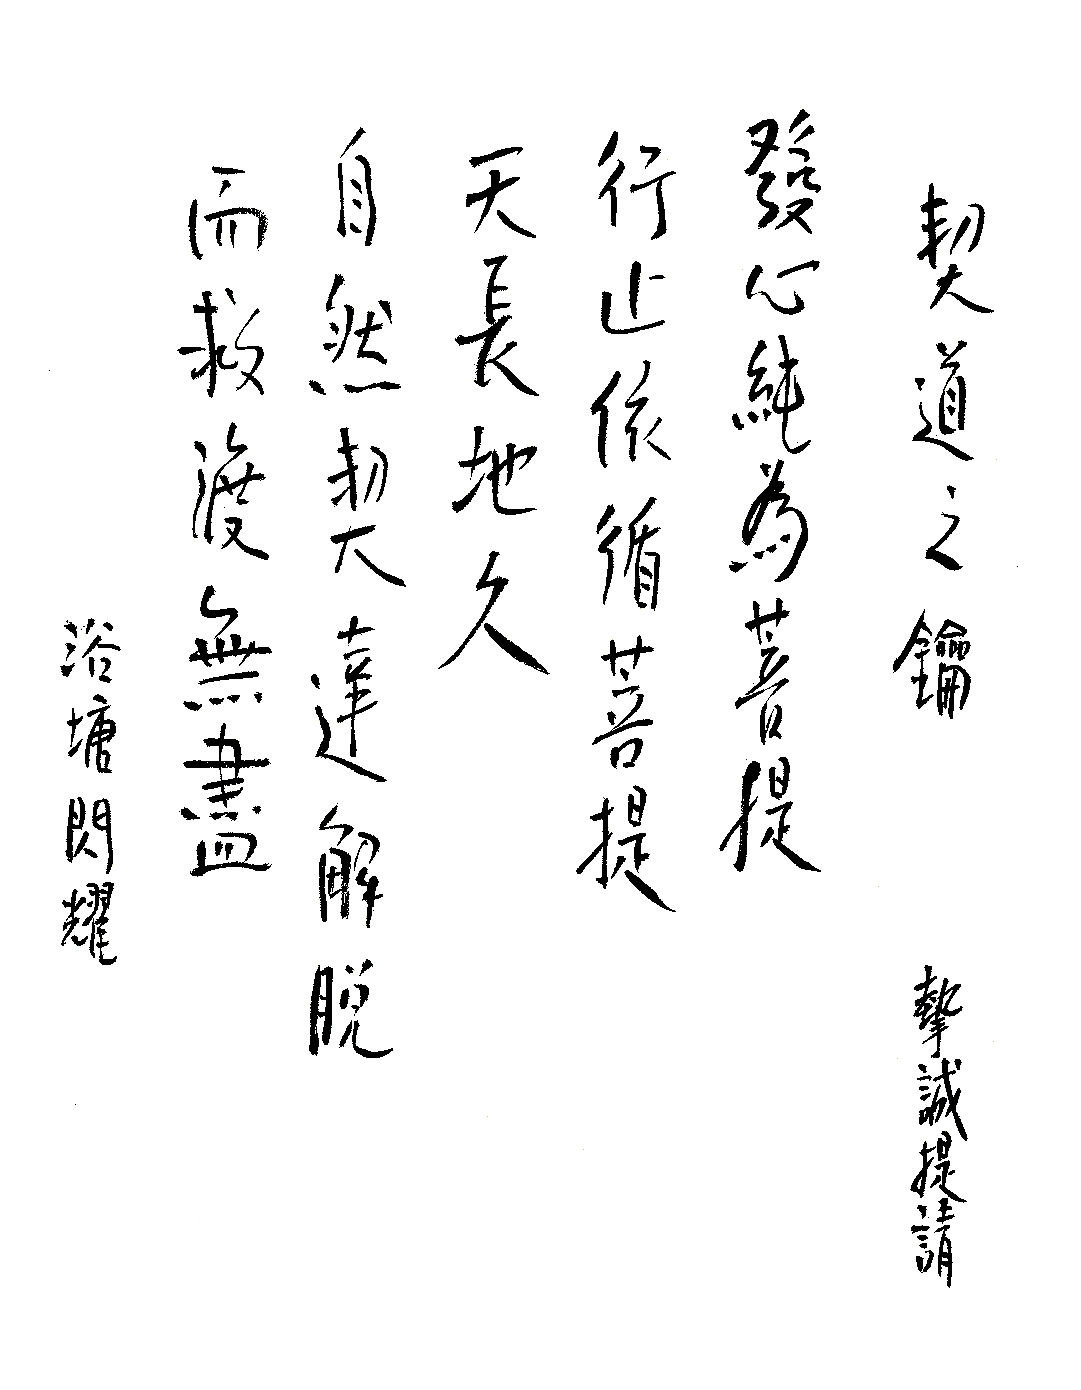 契道之鑰 摯誠提請
發心純為菩提
行止依循菩提
天長地久
自然契達解脫
而救渡無盡
浴塘閃耀